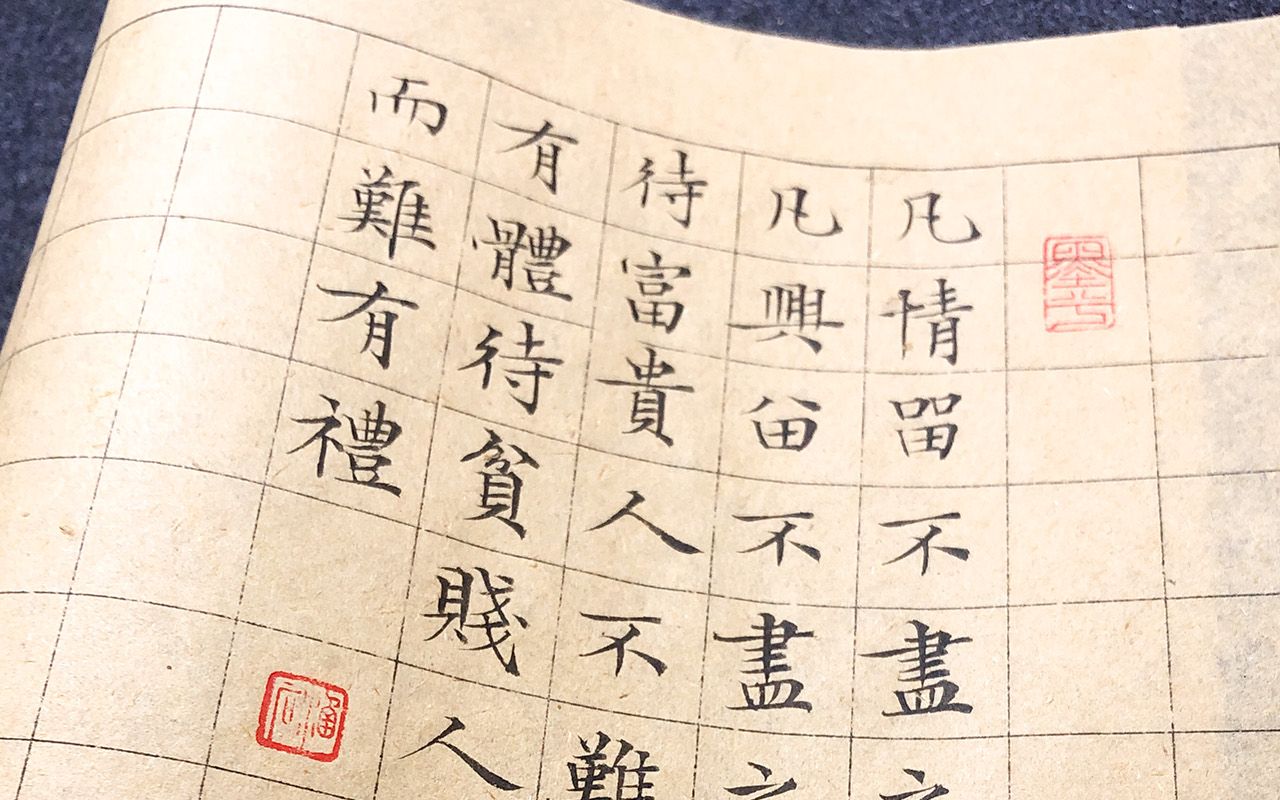 凡情畱不盡之
凡興畄不盡
待富貴人不難
有體待貧賤人
而難有禮